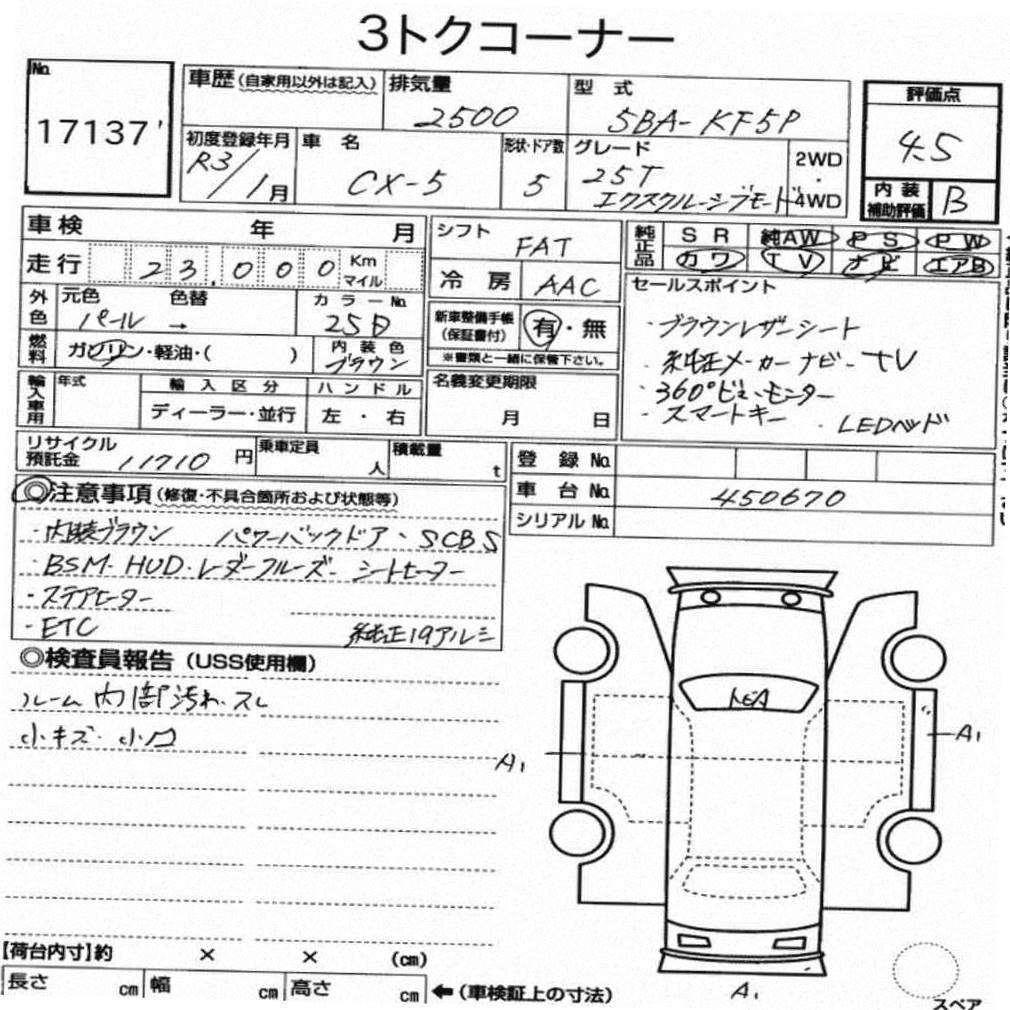 3トクコーナー
No.
17137
車歴(自家用以外は記入)
排気量
2500
型 式
5BA-KF5P
評価点
4.5
初度登録年月
R3/1月
車 名
CX-5
形状・ドア数
5
グレード
25T
エクスクルーシブモード
2WD
・
4WD
内装
補助評価
B
車検 年 月
走行 23,000 Km
マイル
シフト
FAT
冷房
AAC
純正品
SR 純AW PS PW
カワ TV ナビ エアB
外色
元色 色替
パール →
カラーNo.
25D
燃料
ガソリン・軽油・( )
内装色
ブラウン
新車整備手帳
(保証書付)
有・無
※書類と一緒に保管下さい。
セールスポイント
・ブラウンレザーシート
・純正メーカーナビ・TV
・360°ビューモニター
・スマートキー ・LEDヘッド
輸入車用
年式
輸入区分
ディーラー・並行
ハンドル
左・右
名義変更期限
月 日
リサイクル
預託金 11710 円
乗車定員
人
積載量
t
登録No.
車台No. 450670
シリアルNo.
◎注意事項(修復・不具合箇所および状態等)
・内装ブラウン パワーバックドア・SCBS
・BSM・HUD・レーダークルーズ・シートヒーター
・ステアヒーター
・ETC 純正19アルミ
◎検査員報告(USS使用欄)
ルーム内部汚れ・スレ
小キズ・小凹
A1
A1
A1
【荷台内寸】約 × × (cm)
長さ cm 幅 cm 高さ cm ←(車検証上の寸法)
スペア